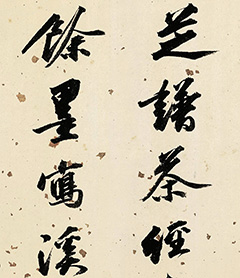 芝譜茶經
餘墨寫溪